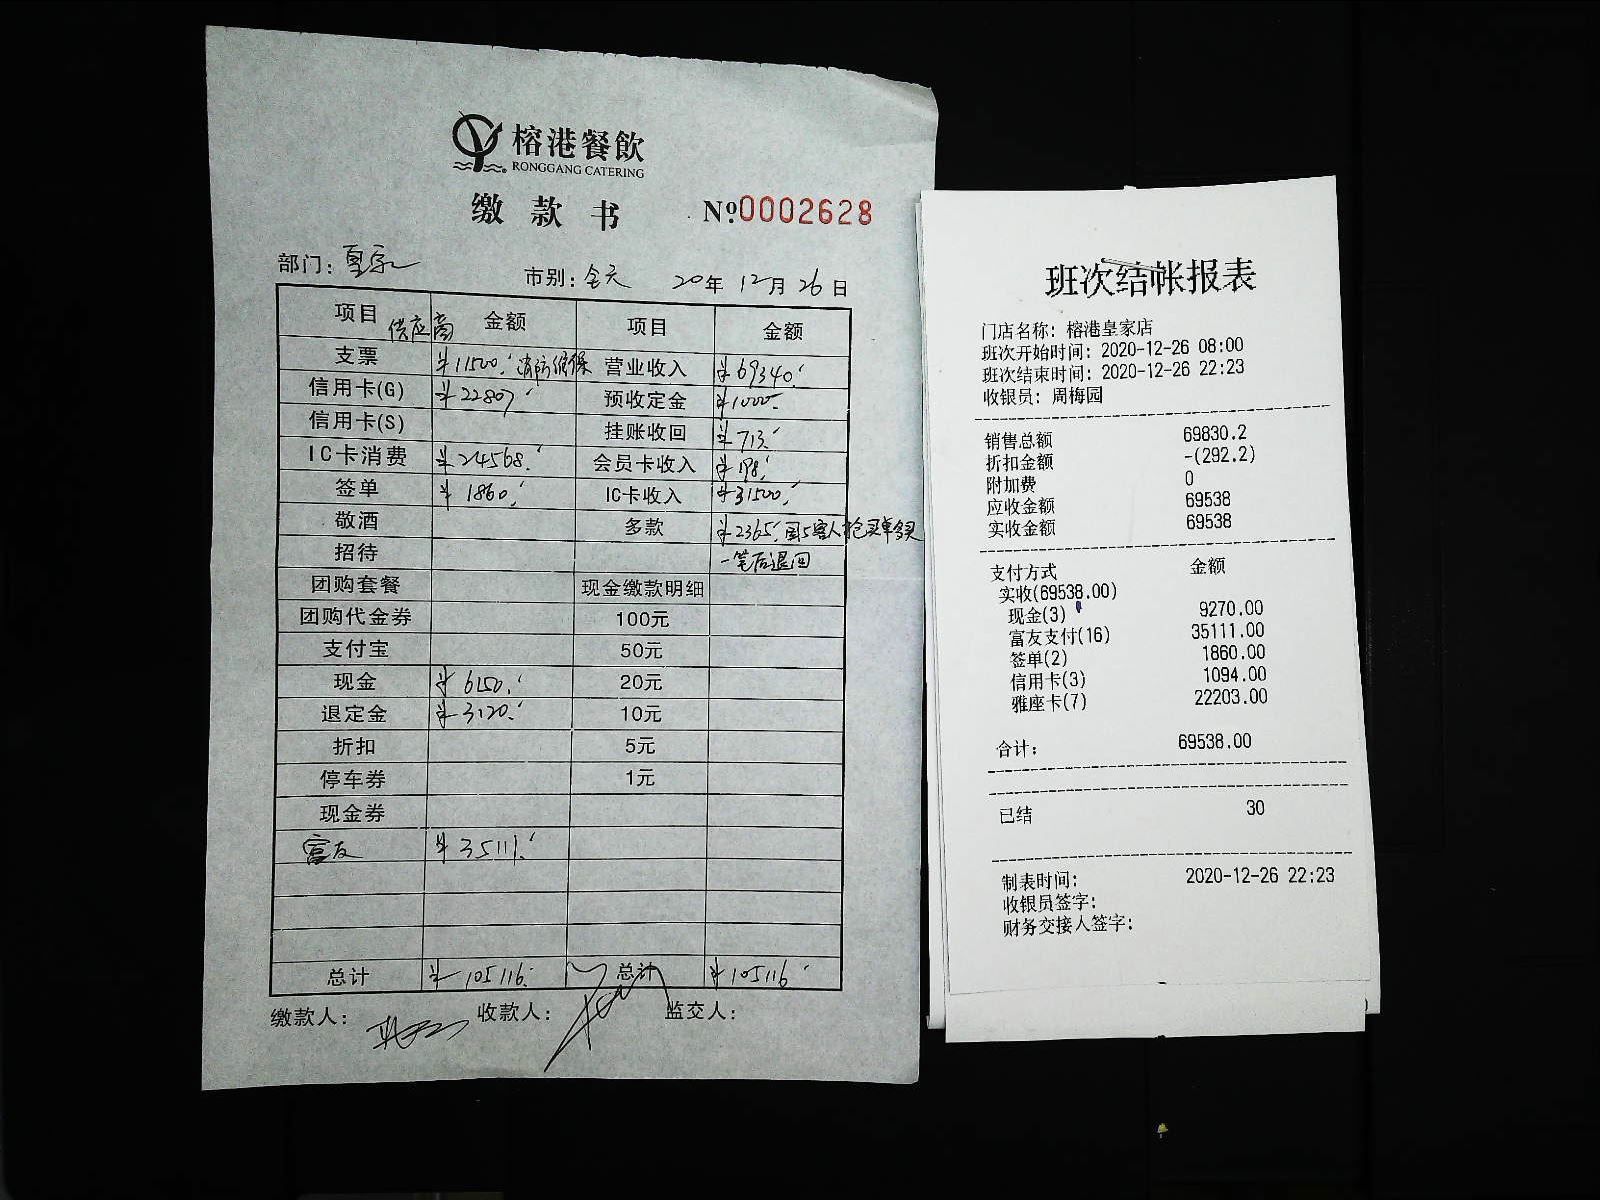 榕港餐飲
RONGGANG CATERING
缴款书 №0002628
部门：皇家 市别：全天 20年12月26日
项目 供应商 金额 项目 金额
支票 ¥11500. 消防维保 营业收入 ¥69340.
信用卡(G) ¥22807 预收定金 ¥1000.
信用卡(S) 挂账收回 ¥713.
IC卡消费 ¥24568. 会员卡收入 ¥198.
签单 ¥1860. IC卡收入 ¥31500.
敬酒 多款 ¥2365. 国5客人抢买单多买
招待 一笔后退回
团购套餐 现金缴款明细
团购代金券 100元
支付宝 50元
现金 ¥6150. 20元
退定金 ¥3120. 10元
折扣 5元
停车券 1元
现金券
富友 ¥35111.
总计 ¥105116. 总计 ¥105116.
缴款人： 收款人： 监交人：
班次结帐报表
门店名称：榕港皇家店
班次开始时间：2020-12-26 08:00
班次结束时间：2020-12-26 22:23
收银员：周梅园
销售总额 69830.2
折扣金额 -(292.2)
附加费 0
应收金额 69538
实收金额 69538
支付方式 金额
实收(69538.00)
现金(3) 9270.00
富友支付(16) 35111.00
签单(2) 1860.00
信用卡(3) 1094.00
雅座卡(7) 22203.00
合计： 69538.00
已结 30
制表时间： 2020-12-26 22:23
收银员签字：
财务交接人签字：